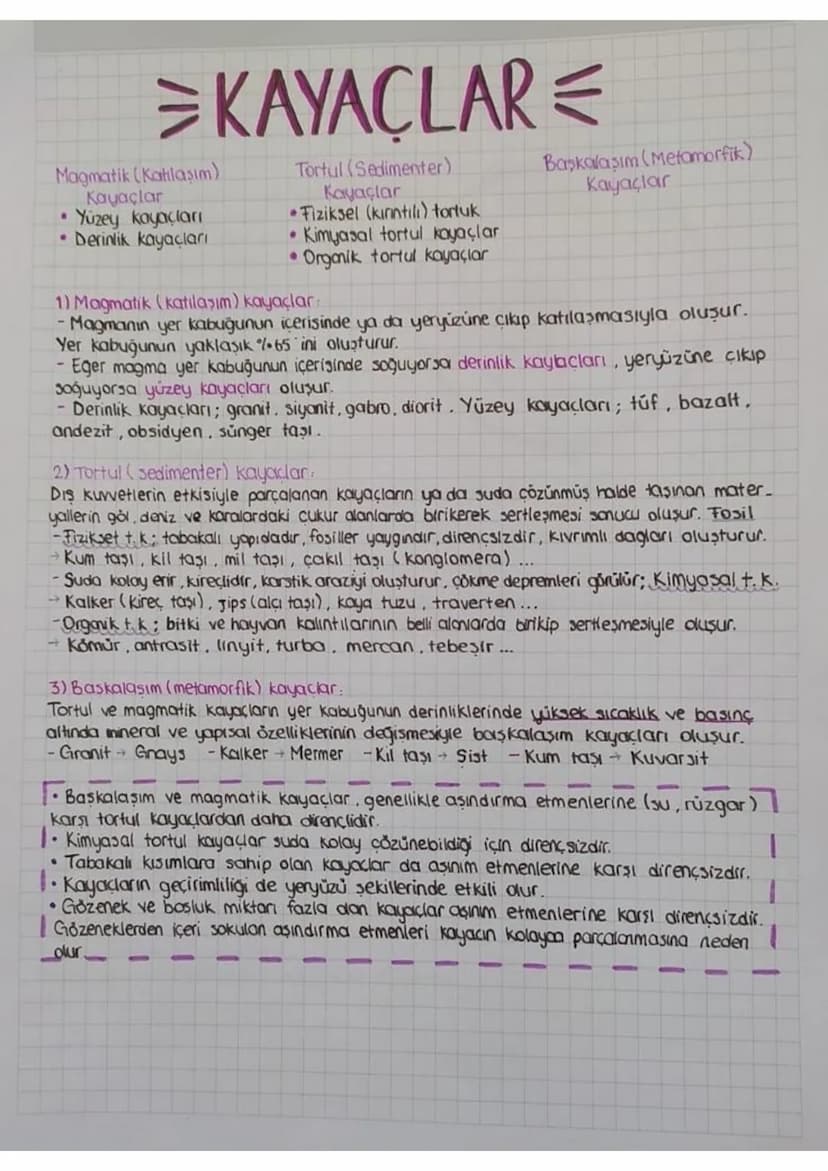 KAYAÇLAR
Magmatik (Katılaşım) Tortul (Sedimenter) Başkalaşım (Metamorfik)
Kayaçlar Kayaçlar Kayaçlar
• Yüzey kayaçları • Fiziksel (kırıntılı) tortuk
• Derinlik kayaçları • Kimyasal tortul kayaçlar
• Organik tortul kayaçlar
1) Magmatik (katılaşım) kayaçlar:
- Magmanın yer kabuğunun içerisinde ya da yeryüzüne çıkıp katılaşmasıyla oluşur.
Yer kabuğunun yaklaşık %65'ini oluşturur.
- Eğer magma yer kabuğunun içerisinde soğuyorsa derinlik kaybaçları, yeryüzüne çıkıp
soğuyorsa yüzey kayaçları oluşur.
- Derinlik kayaçları; granit, siyanit, gabro, diorit. Yüzey kayaçları; tüf, bazalt,
andezit, obsidyen, sünger taşı.
2) Tortul (sedimenter) kayaçlar:
Dış kuvvetlerin etkisiyle parçalanan kayaçların ya da suda çözünmüş halde taşınan mater-
yallerin göl, deniz ve karalardaki çukur alanlarda birikerek sertleşmesi sonucu oluşur. Fosil
- Fizikset t.k; tabakalı yapıdadır, fosiller yaygındır, dirençsizdir, kıvrımlı dağları oluşturur.
→ Kum taşı, kil taşı, mil taşı, çakıl taşı (konglomera) ...
- Suda kolay erir, kireçlidir, karstik araziyi oluşturur, çökme depremleri görülür; Kimyasal t.k.
→ Kalker (kireç taşı), Jips (alçı taşı), kaya tuzu, traverten...
- Organik t.k; bitki ve hayvan kalıntılarının belli alanlarda birikip sertleşmesiyle oluşur.
→ Kömür, antrasit, linyit, turba, mercan, tebeşir ...
3) Başkalaşım (metamorfik) kayaçlar:
Tortul ve magmatik kayaçların yer kabuğunun derinliklerinde yüksek sıcaklık ve basınç
altında mineral ve yapısal özelliklerinin değişmesiyle başkalaşım kayaçları oluşur.
- Granit → Gnays - Kalker → Mermer - Kil taşı → Şist - Kum taşı → Kuvarsit
• Başkalaşım ve magmatik kayaçlar, genellikle aşındırma etmenlerine (su, rüzgar)
karşı tortul kayaçlardan daha dirençlidir.
• Kimyasal tortul kayaçlar suda kolay çözünebildiği için dirençsizdir.
• Tabakalı kısımlara sahip olan kayaçlar da aşınım etmenlerine karşı dirençsizdir.
• Kayaçların geçirimliliği de yeryüzü şekillerinde etkili olur.
• Gözenek ve boşluk miktarı fazla olan kayaçlar aşınım etmenlerine karşı dirençsizdir.
Gözeneklerden içeri sokulan aşındırma etmenleri kayacın kolayca parçalanmasına neden
olur.